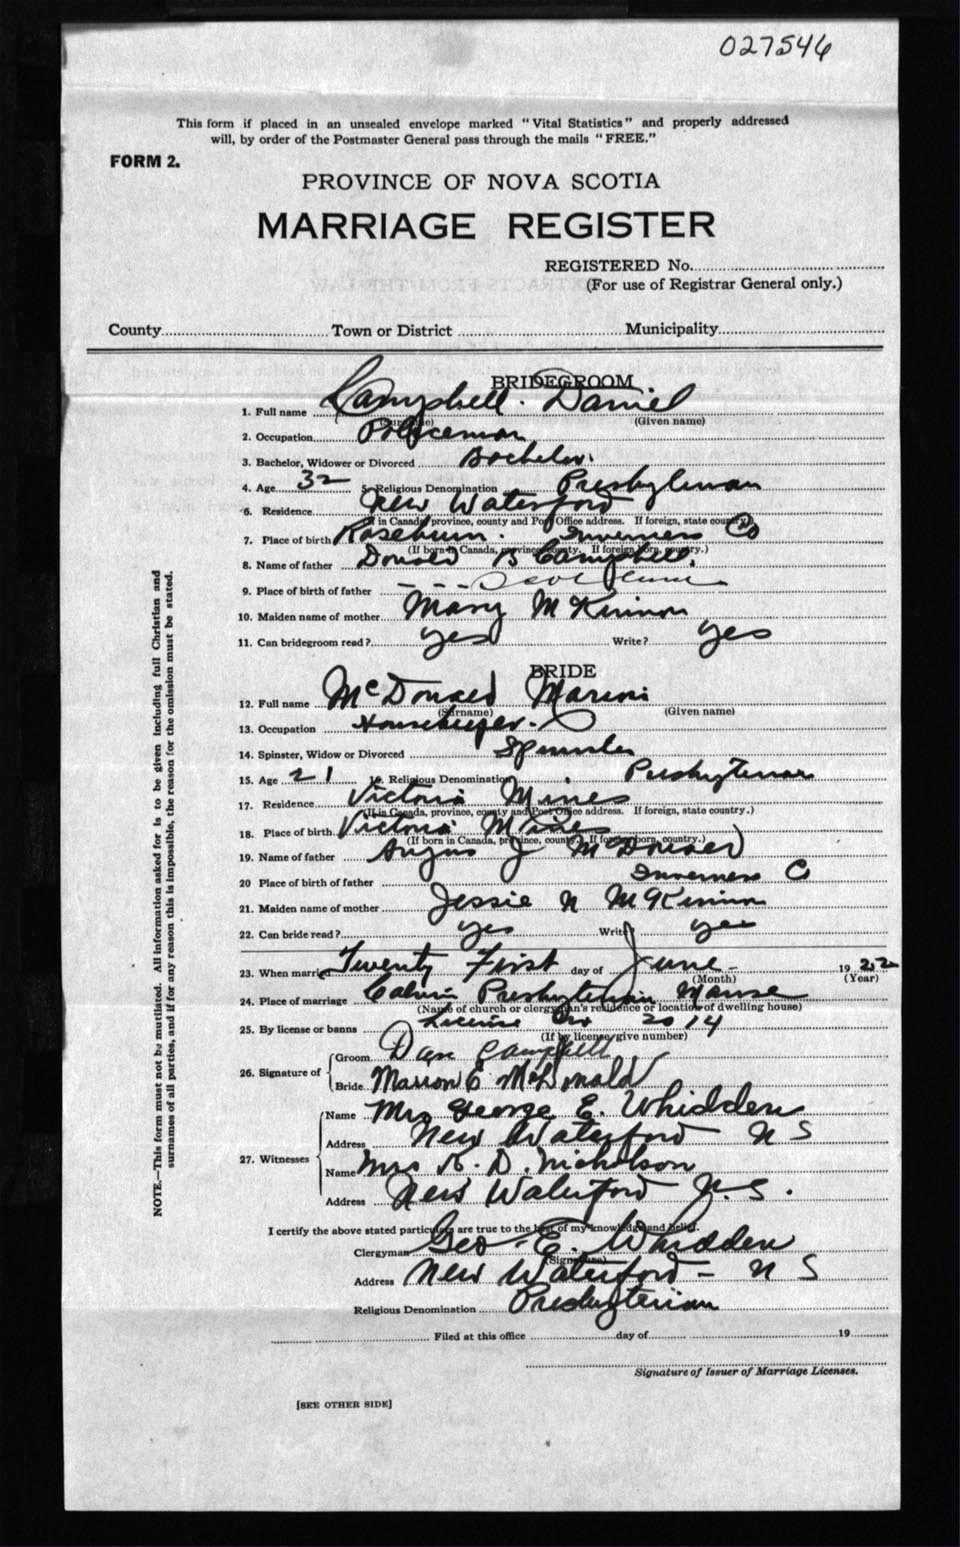 027546
This form if placed in an unsealed envelope marked "Vital Statistics" and properly addressed
will, by order of the Postmaster General pass through the mails "FREE."
FORM 2.
PROVINCE OF NOVA SCOTIA
MARRIAGE REGISTER
REGISTERED No.
(For use of Registrar General only.)
County Town or District Municipality
BRIDEGROOM
1. Full name Campbell. Daniel
(Surname) (Given name)
2. Occupation Policeman
3. Bachelor, Widower or Divorced Bachelor.
4. Age 32 5. Religious Denomination Presbyterian
6. Residence New Waterford
(If in Canada, province, county and Post Office address. If foreign, state country.)
7. Place of birth Inverness Co
(If born in Canada, province, county. If foreign born, country.)
8. Name of father Donald B Campbell.
9. Place of birth of father
10. Maiden name of mother Mary McKinnon
11. Can bridegroom read? yes Write? yes
BRIDE
12. Full name McDonald Marion
(Surname) (Given name)
13. Occupation Housekeeper.
14. Spinster, Widow or Divorced Spinster
15. Age 21 16. Religious Denomination Presbyterian
17. Residence Victoria Mines
(If in Canada, province, county and Post Office address. If foreign, state country.)
18. Place of birth Victoria Mines
(If born in Canada, province, county. If foreign born, country.)
19. Name of father Angus J McDonald
20 Place of birth of father Inverness Co
21. Maiden name of mother Jessie N McKinnon
22. Can bride read? yes Write? yes
23. When married Twenty First day of June 1922
(Month) (Year)
24. Place of marriage Calvin Presbyterian Manse
(Name of church or clergyman's residence or location of dwelling house)
25. By license or banns License No 2014
(If by license, give number)
26. Signature of
Groom Dan Campbell
Bride Marion E McDonald
27. Witnesses
Name Mrs George E. Whidden
Address New Waterford - N S
Name Mrs K. D. Nicholson
Address New Waterford N.S.
I certify the above stated particulars are true to the best of my knowledge and belief.
Clergyman Geo. E. Whidden
(Signature)
Address New Waterford - N S
Religious Denomination Presbyterian
Filed at this office day of 19
Signature of Issuer of Marriage Licenses.
[SEE OTHER SIDE]
NOTE.—This form must not be mutilated. All information asked for is to be given including full Christian and
surnames of all parties, and if for any reason this is impossible, the reason for the omission must be stated.